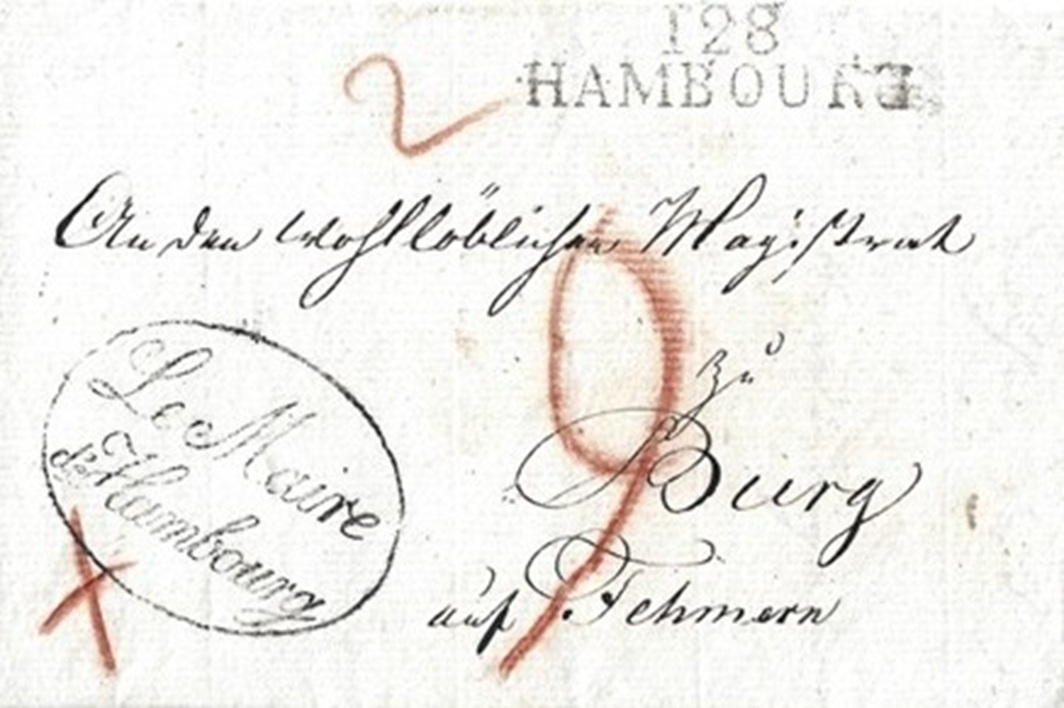 128
HAMBOURG
2
An den wohllöblichen Magistrat
zu
Burg
auf Fehmern
9
Le Maire
d'Hambourg